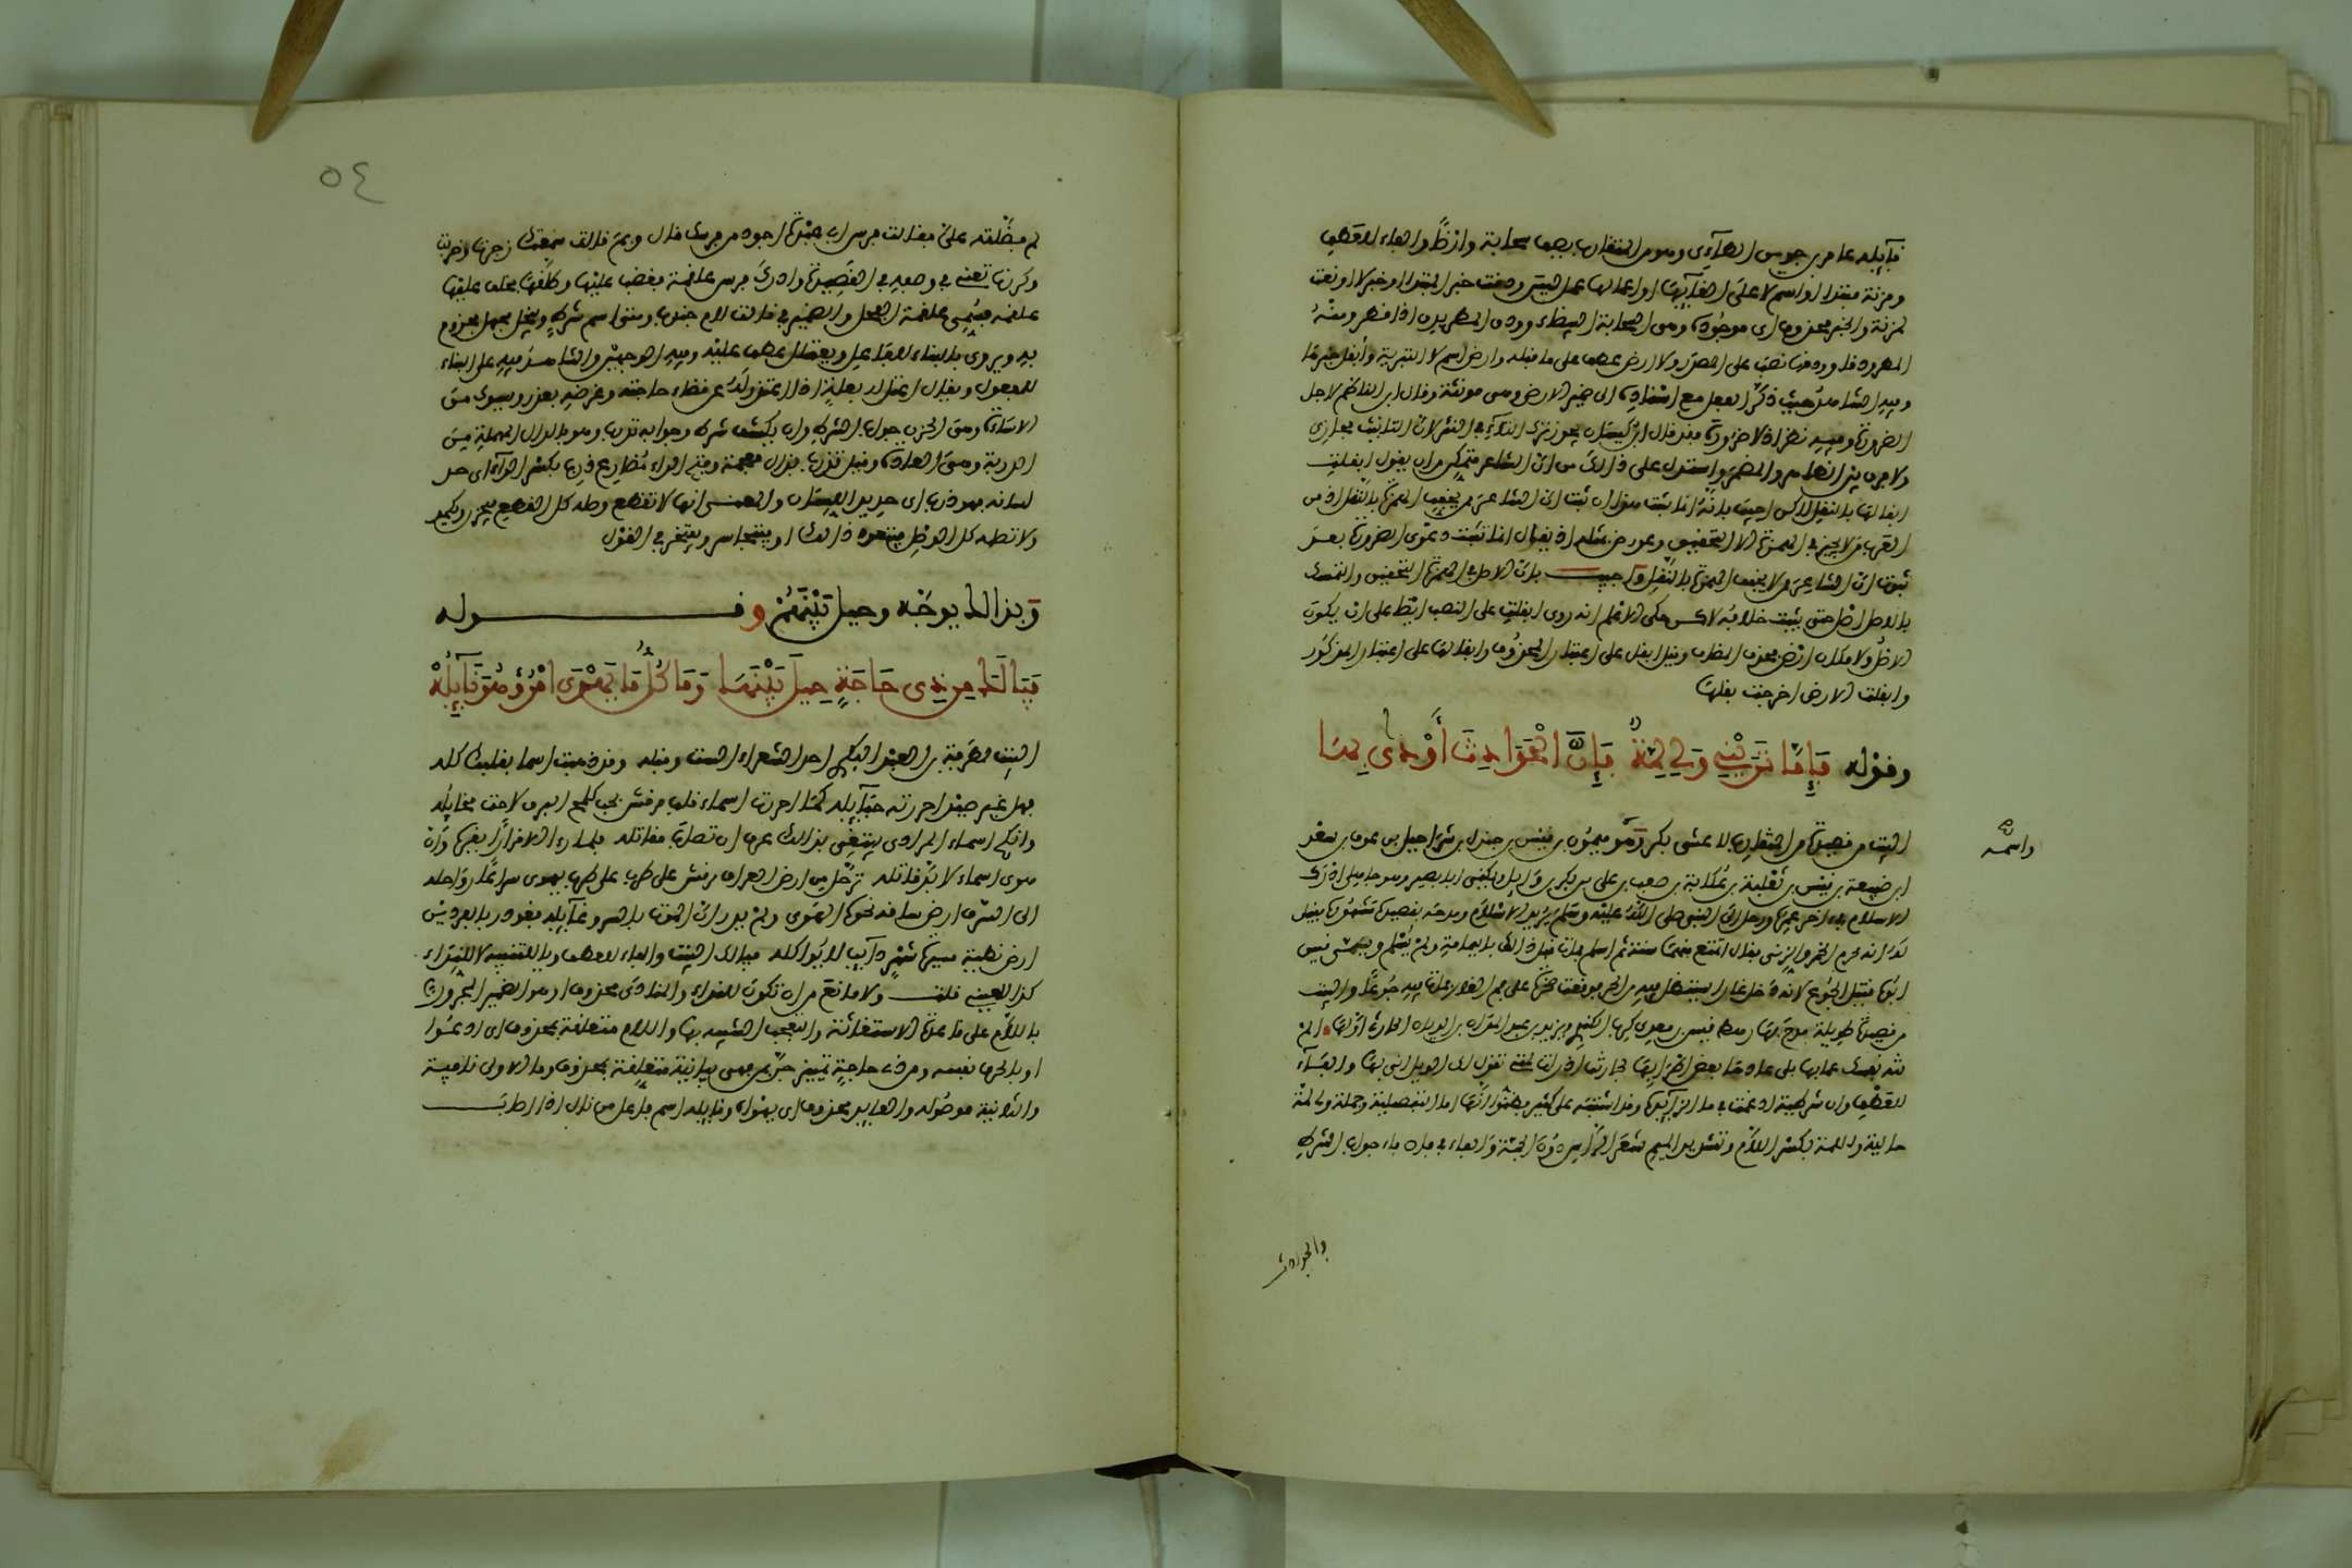 قآيله عامر بن جوين الطآءى وهو من المتقارب يصف سحابة وارضًا والفاء للعطف
ومزنة مبتدا او اسم لا على الغآيها او اعمالها عمل ليس ودقت خبر المبتدا او خبر لا او نعت
لمزنة والخبر محذوف اى موجودة وهى السحابة البيضاء وودق المطر يدق اذا قطر ومنه
المطر ودقا وودقها نصب على المصدر ولا ارض عطف على ما قبله وارض اسم لا التبرية وأبقل خبرها
وفيه الشاهد حيث ذكّر الفعل مع اسناده الى ضمير الارض وهى مونثة وقال ابن الناظم لاجل
الضرورة وفيه نظر اذ لا ضرورة فقد قال ابن كيسان يجوز ترك التآء في النثر لان التانيث مجازى
ولا فرق بين الظاهر والمضمر واستدل على ذالك من ان الشاعر متمكن من ان يقول ابقلت
ابقالها بالنقل لاكن اجيب بانه انما يثبت هذا ان ثبت ان الشاعر ممن يخفف الهمزة بالنقل اذ من
العرب من لا يجيز في الهمزة الا التحقيق وعورض بمثله اذ يقال انما تثبت دعوى الضرورة بعد
ثبوت ان الشاعر ممن لا يخفف الهمزة بالنقل واجيب بان الاصل في الهمزة التحقيق والتمسك
بالاصل اصل حتى يثبت خلافه لاكن حكى الاعلم انه روى ابقلت على النصب ايضا على ان يكون
الاصل ولا مكان ارض فحذف المضاف وقيل ابقل على اعتبار المحذوف وابقالها على اعتبار المذكور
وابقلت الارض اخرجت بقلها
وقوله فَإِمَّا تَرَيْنِي وَلِي لِمَّةٌ فَإِنَّ الحَوَادِثَ أَوْدَى بِهَا
البيت من قصيدة من المتقارب لاعشى بكر وهو ميمون بن قيس بن جندل بن شراحيل بن عوف بن سعد
واسمه
ابن ضبيعة بن قيس بن ثعلبة بن عكابة بن صعب بن على بن بكر بن وآيل ويكنى ابا بصير وهو جاهلى ادرك
الاسلام في اخر عمره ورحل الى النبى صلى الله عليه وسلم يريد الاسلام ومدحه بقصيدة مشهورة فقيل
له انه يحرم الخمر والزنى فقال اتمتع منهما سنة ثم اسلم فمات قبل ذالك باليمامة ولم يسلم ويسمى قيس
ابوه قتيل الجوع لانه دخل غارا يستظل فيه من الحر فوقعت صخرة على فم الغار فمات فيه جوعًا والبيت
من قصيدة طويلة مدح بها رهط قيس بن معدى كرب الكندى ويزيد بن عبد المدان بن الديان الحارثى اولها الم
تنه نفسك عما بها بلى عادها بعض اطرابها لجارتنا اذ رات لمتى تقول لك الويل انى بها والفآء
للعطف وان شرطية ادغمت في ما الزآيدة وقد اشتبه على كثير فظنوا انها اما التفصيلية وجملة ولى لمة
حالية واللمة بكسر اللام وتشديد الميم شعر الراس دون الجمة والفاء في فان فاء جواب الشرط
والحوادث
٥٤
لم يطلقه على فقالت فرس اب هبدة اجود من فرسك قال وبم قالت سمعتك زجرتها وضربت
وكررتها تعنى في وصفه في القصيدة وادرك فرس علقمة فغضب عليها وطلقها فخلف عليها
علقمة فسمى علقمة الفحل والضمير في قالت لام جندب ومتى اسم شرط ويبخل مجهل مجزوم
به ويروى بالبناء للفاعل ويعتلل عطف عليه وفيه الوجهين والشاهد فيه على البناء
للمفعول ويقال اعتل له بعلة اذا اعتذر له عن قضاء حاجته وغرضه بعذر ويسوك من
الاساءة وهى الحزن جواب الشرط وان يكشف شرط وجوابه تدرب وهو بالدال المهملة من
الدربة وهى العادة وقيل تذرب بذال معجمة وفتح الراء مضارع ذرب بكسر الرآء اى حد
لسانه فهو ذرب اى حديد اللسان والمعنى انها لا تقطع وصله كل القطع فيحزن ويكمد
ولا تصله كل الوصل فيتعود ذالك او يتجاسر ويجترئ في القول
وبذالك يوجه وحيل بينهم وقوله
فَيَا لَكَ مِن ذِى حَاجَةٍ حِيلَ بَيْنَهَا وَمَا كُلُّ مَا يَهْوَى امْرُؤٌ هُوَ نَآيِلُهْ
البيت لطرفة بن العبد البكرى احد الشعراء الستة وقبله وقد ذهبت اسما بقلبك كله
فهل غير صيد احرزته حبآيله كما احرزت اسماء قلب مرقش بحب كلمح البرق لاحت مخايله
وانكح اسماء المرادى يبتغى بذالك عوف ان تصاب مقاتله فلما راى الا قرارًا يقره وان
هوى اسماء لا بد قاتله ترحل من ارض العراق مرقش على طرب تهوى سراعًا رواحله
الى السرو ارض ساقه نحوها الهوى ولم يدر ان الموت بالسرو غآيله فغودر بالفردين
ارض نطية مسيرة شهر دآيب لا يواكله فيالك البيت والفاء للعطف ويا للتنبيه لا للنداء
كذا للعينى قلت ولا مانع من ان تكون للنداء والمنادى محذوف او هو الضمير المجرور
باللام على قاعدة الاستغاثة والتعجب الشبيه بها واللام متعلقة بمحذوف اى ادعوا
او بالحرف نفسه ومن ذى حاجة تمييز جُرّ بمن فهى بيانية متعلقة بمحذوف وما الاولى نافية
والثانية موصولة والعآيد محذوف اى يهواه ونايله اسم فاعل من نال اذا اصاب